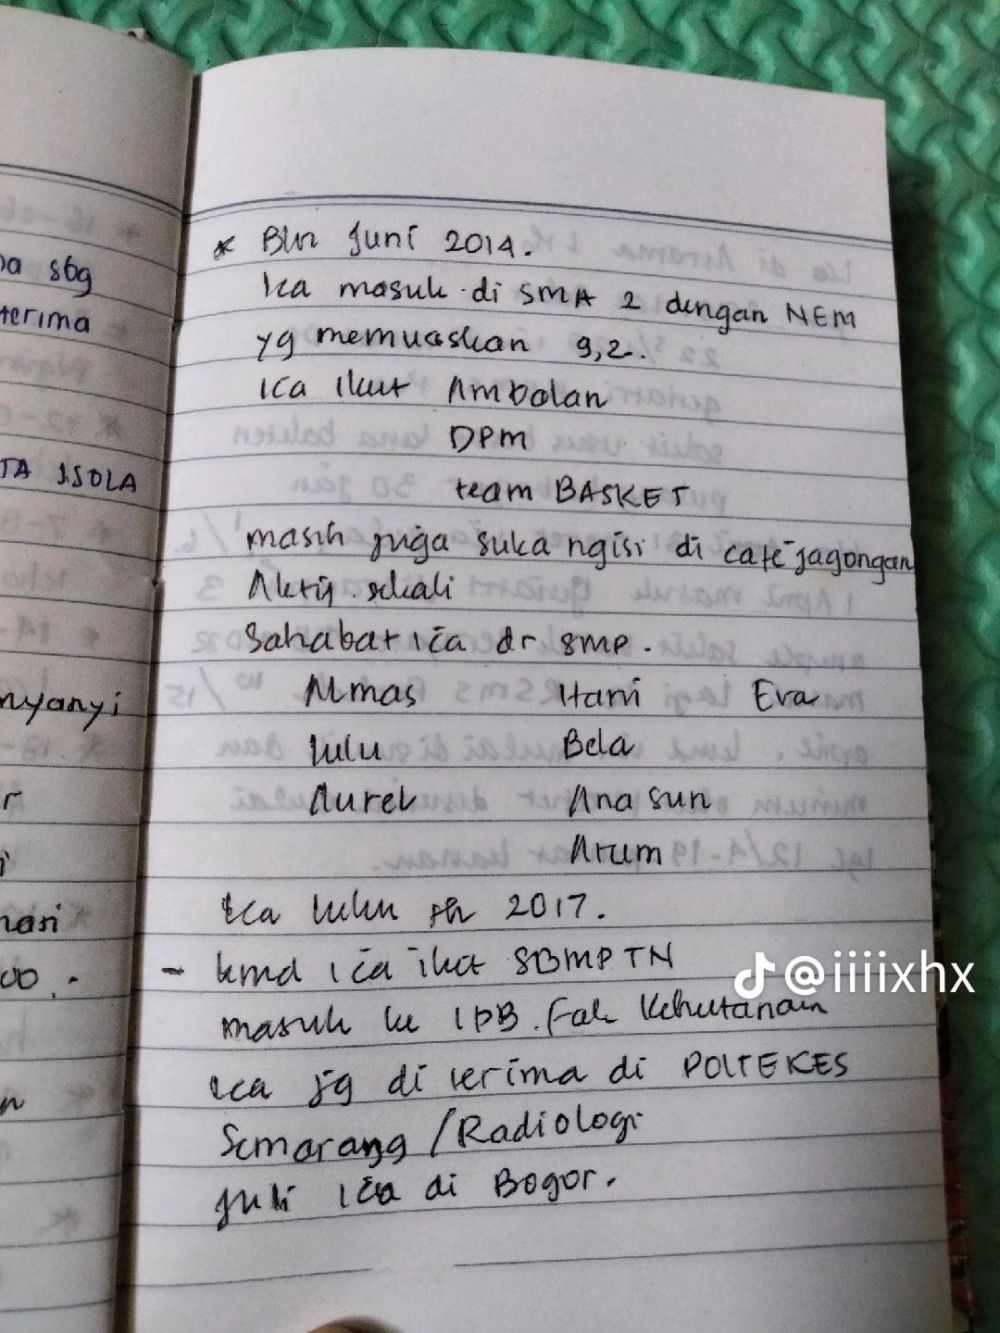 pa sbg
terima
TA ISOLA
nyanyi
r
i
hari
00.-
n
* Bln Juni 2014.
Ica masuk di SMA 2 dengan NEM
yg memuaskan 9,2.
ica ikut Ambalan
DPM
team BASKET
masih juga suka ngisi di cafe jagongan
Aktif sekali
Sahabat ica dr SMP.
Almas Hani Eva
lulu Bela
Aurel Ana sun
Arum
Ica lulus th 2017.
- kmd ica ikut SBMPTN
masuk ke IPB. Fak Kehutanan
Ica jg di terima di POLTEKES
Semarang /Radiologi
Juli Ica di Bogor.
@iiiixhx